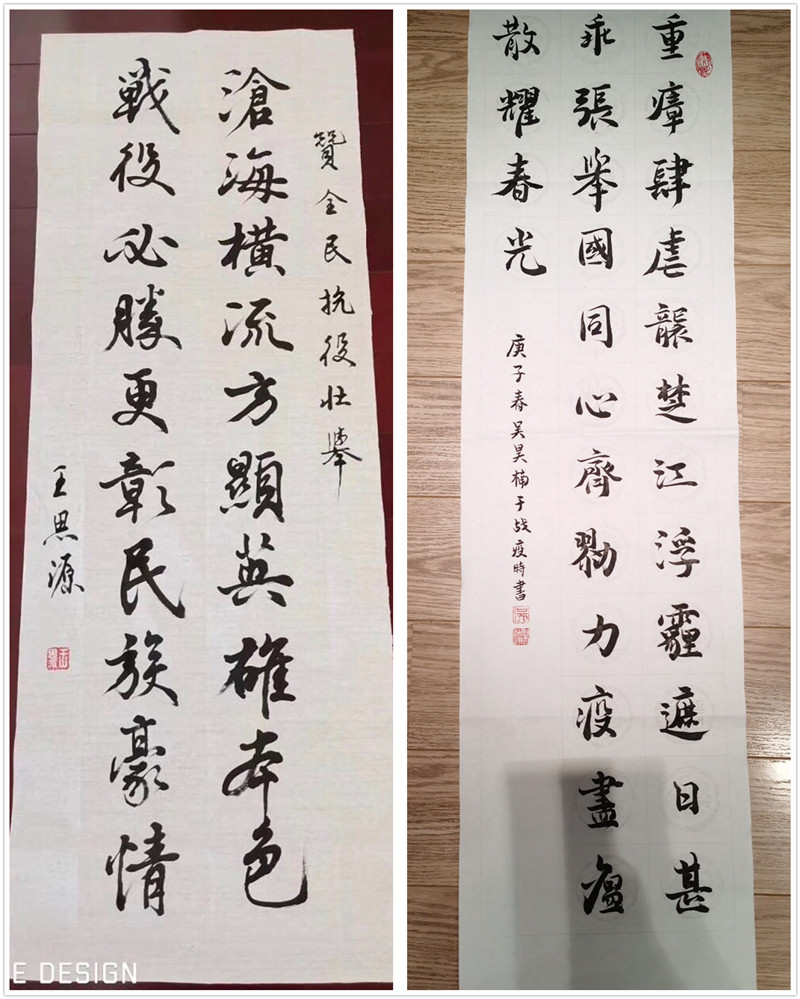 贊全民抗役壯舉
滄海橫流方顯英雄本色
戰役必勝更彰民族豪情
王思源
E DESIGN
重瘴肆虐襲楚江浮霾遮日甚
乖張舉國同心齊勠力疫盡瘟
散耀春光
庚子春吴昊楠于战疫時書